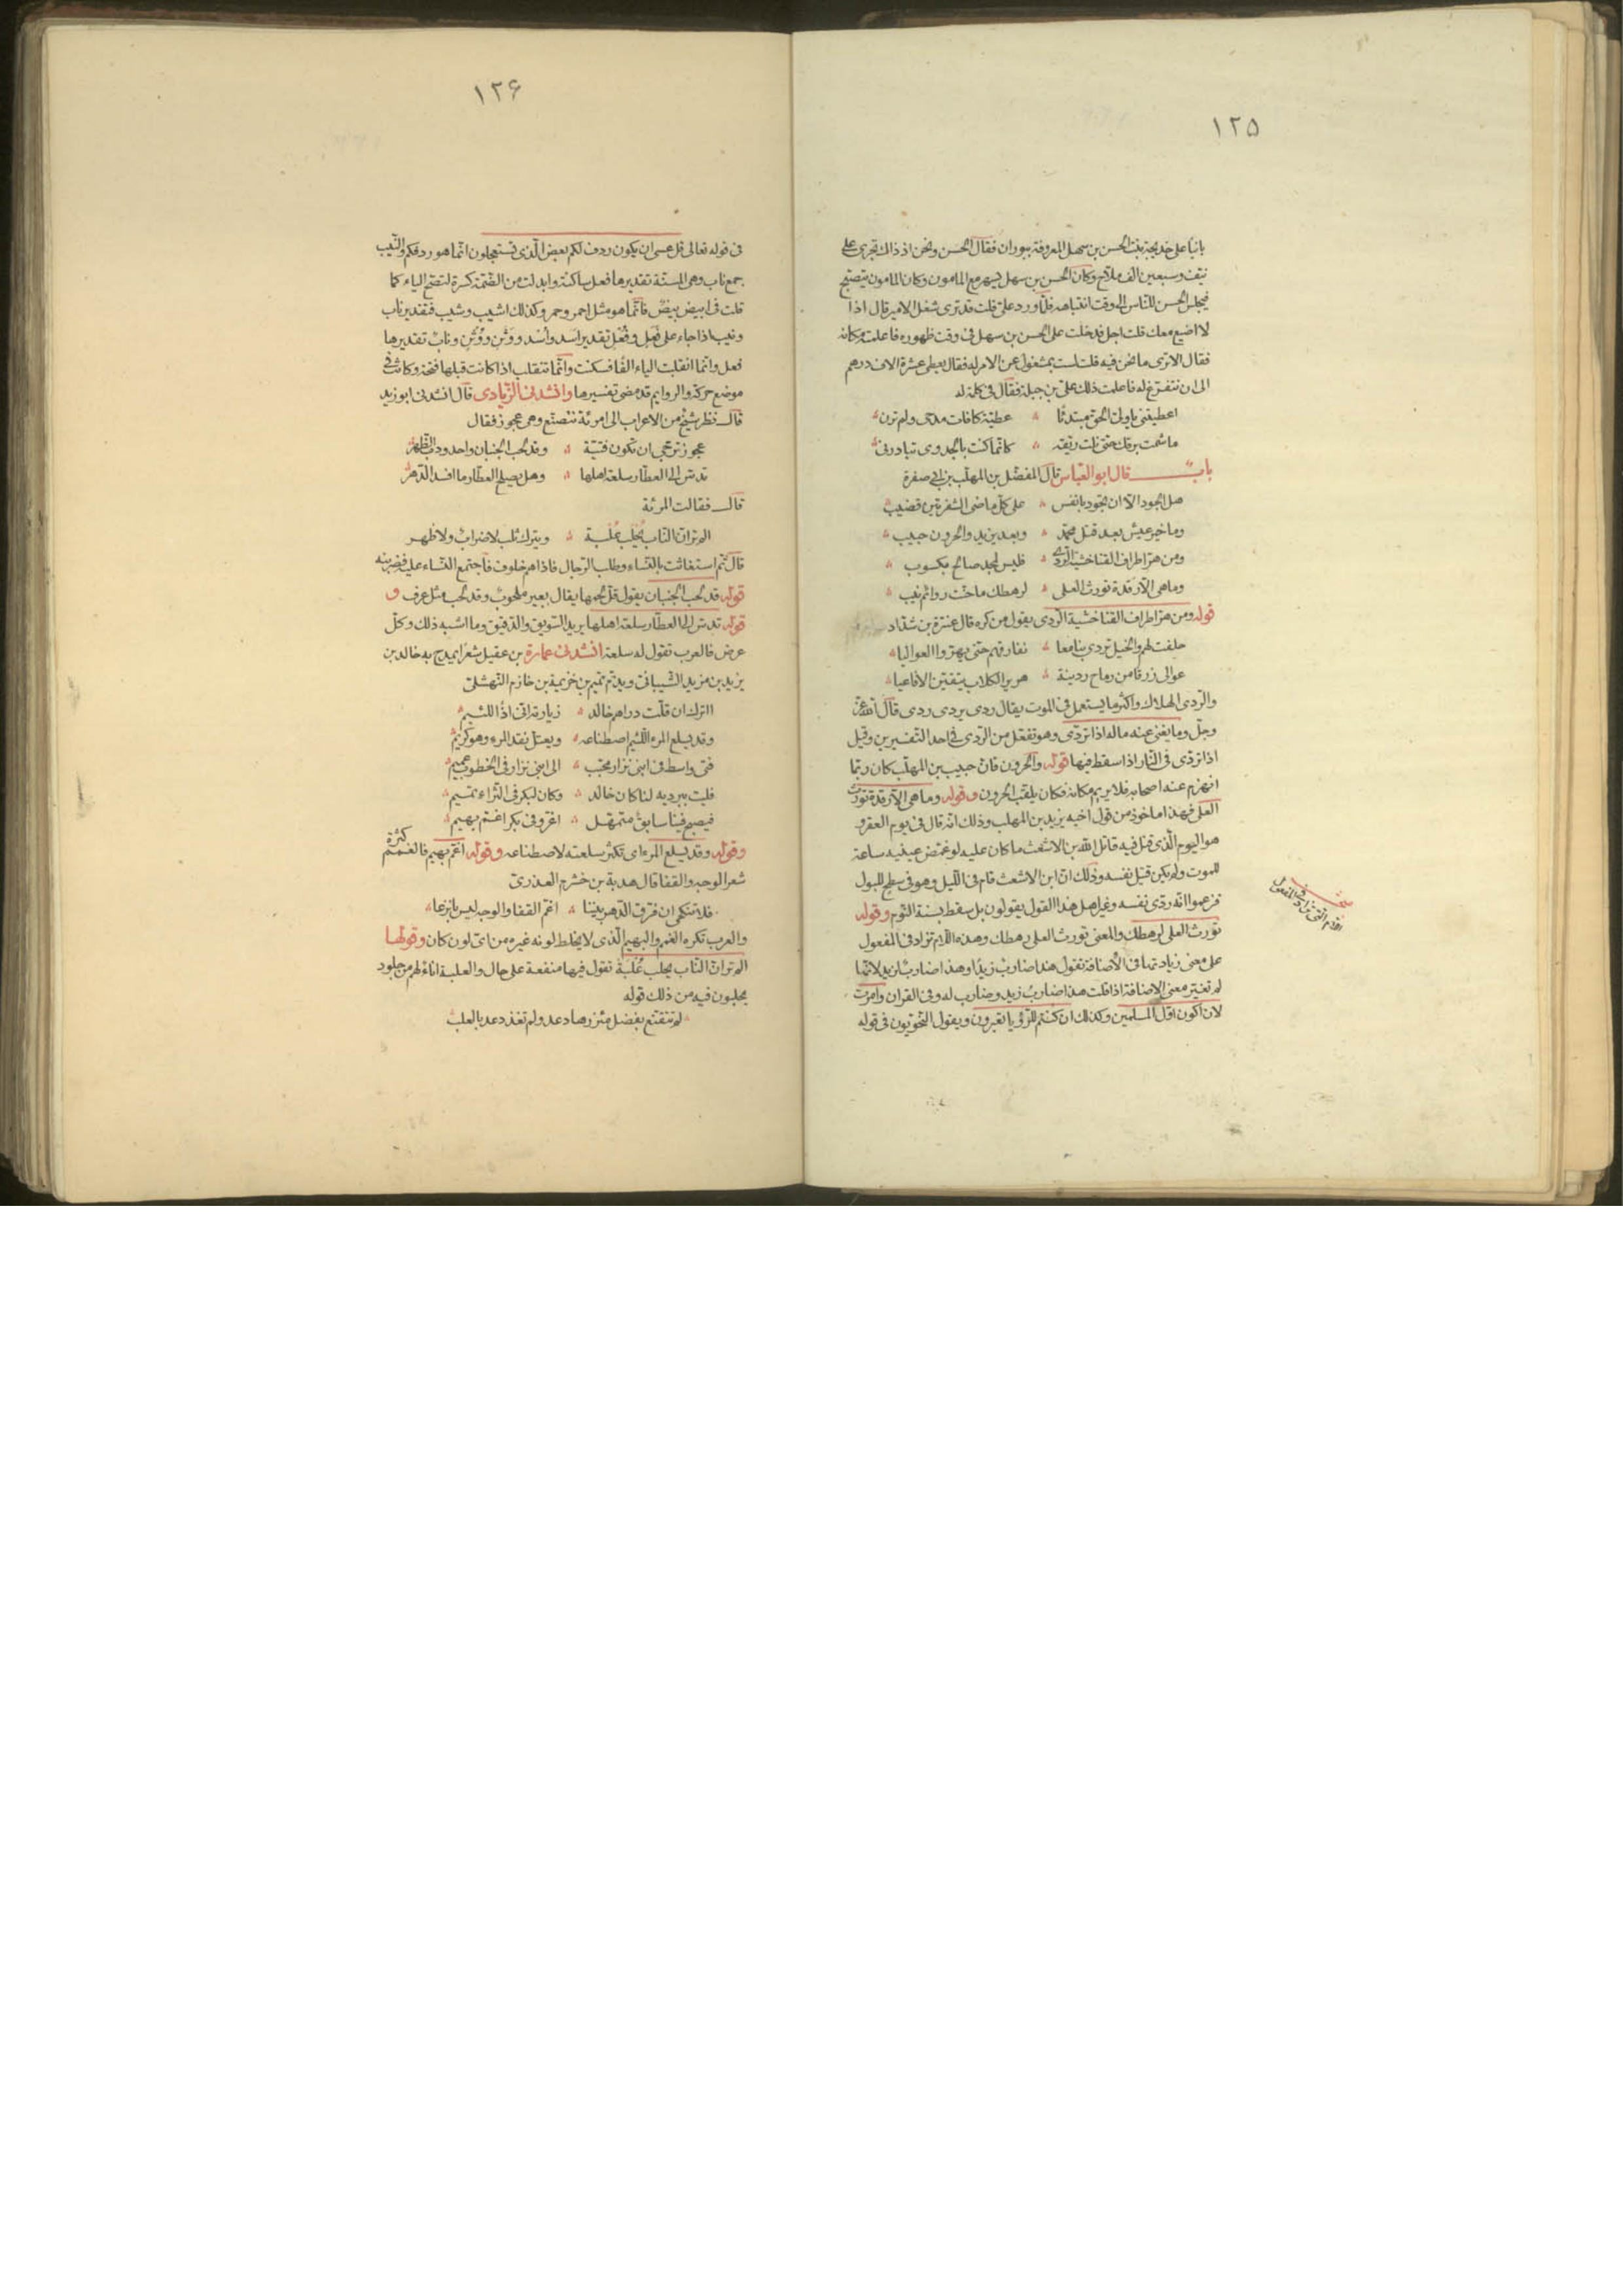 ١٢٥
بانيا على خديجة بنت الحسن بن سهل المعروفة ببوران فقال الحسن ونحن اذ ذاك تجرى على
نيف وسبعين الف ملاح وكان الحسن بن سهل يسهر مع المامون وكان المامون يتصبح
فيجلس الحسن للناس الى وقت انتباهه فلما ورد على قلت قد ترى شغل الامير قال اذا
لا اضيع معك قلت اجل فدخلت على الحسن بن سهل فى وقت ظهوره فاعلمته مكانه
فقال الا ترى ما نحن فيه قلت لست بمشغول عن الامر له فقال يعطى عشرة الاف درهم
الى ان نتفرغ له فاعلمت ذلك على بن جبلة فقال فى كلمة له
اعطيتنى يا ولى الحق مبتدئا عطية كافات مدحى ولم ترنى
ما شمت برقك حتى نلت ريقه كانما كنت بالجدوى تبادرنى
باب قال ابو العباس قال المفضل بن المهلب بن ابى صفرة
هل الجود الا ان تجود بانفس على كل ماضى الشفرتين قضيب
وما خير عيش بعد قتل محمد وبعد يزيد والحرون حبيب
ومن هز اطراف القنا خشية الردى فليس لمجد صالح بكسوب
وما هى الا رقدة تورث العلى لرهطك ما حنت روائم نيب
قوله ومن هز اطراف القنا خشية الردى يقول من كره قال عنترة بن شداد
حلفت لهم والخيل تردى بنا معا نفارقهم حتى يهزوا العواليا
عوالى زرقا من رماح ردينة هرير الكلاب يتقين الافاعيا
والردى الهلاك واكثر ما يستعمل فى الموت يقال ردى يردى ردى قال الله عز
وجل وما يغنى عنه ماله اذا تردى وهو تفعل من الردى فى احد التفسيرين وقيل
اذا تردى فى النار اذا سقط فيها قوله والحرون فان حبيب بن المهلب كان ربما
انهزم عنه اصحابه فلا يريم مكانه فكان يلقب الحرون وقوله وما هى الا رقدة تورث
العلى فهذا ماخوذ من قول اخيه يزيد بن المهلب وذلك انه قال فى يوم العقر و
هو اليوم الذى قتل فيه قاتل الله بن الاشعث ما كان عليه لو غمض عينيه ساعة
للموت ولم يكن قتيل نفسه وذلك ان ابن الاشعث قام فى الليل وهو فى سطح للبول
فزعموا انه ردى نفسه وغير اهل هذا القول يقولون بل سقط بسنة النوم وقوله
تورث العلى لرهطك والمعنى تورث العلى رهطك وهذه اللام تزاد فى المفعول
على معنى زيادتها فى الاضافة تقول هذا ضارب زيدا وهذا ضارب لزيد لانها
لم تغير معنى الاضافة اذا قلت هذا ضارب زيد وضارب له وفى القران وامرت
لان اكون اول المسلمين وكذلك ان كنتم للرؤيا تعبرون ويقول النحويون فى قوله
١٢۶
فى قوله تعالى قل عسى ان يكون ردف لكم بعض الذى تستعجلون انما هو ردفكم والنيب
جمع ناب وهى المسنة تقديرها فعل ساكنة وابدلت من الضمة كسرة لتصح الياء كما
قلت فى ابيض بيض فانما هو مثل احمر وحمر وكذلك اشيب وشيب فتقدير ناب
ونيب اذا جاء على فعل وفعل تقدير اسد واسد ووثن ووثن وناب تقديرها
فعل وانما انقلبت الياء الفا فسكنت وانما تنقلب اذا كانت قبلها فتحة وكانت فى
موضع حركة والروايم قد مضى تفسيرها وانشدنى الزيادى قال انشدنى ابو زيد
قال نظر شيخ من الاعراب الى امرئة تتصنع وهى عجوز فقال
عجوز ترجى ان تكون فتية وقد لحب الجنبان واحدودب الظهر
تدس الى العطار سلعة اهلها وهل يصلح العطار ما افسد الدهر
قال فقالت المرئة
الم تر ان الناب تحلب علبة ويترك ثلب لا ضراب ولا ظهر
قال ثم استغاثت بالنساء وطلب الرجال فاذا هم خلوف فاجتمع النساء عليه فضربنه
قوله قد لحب الجنبان يقول قل لحمها يقال بعير ملحوب وقد لحب مثل عرف و
قوله تدس الى العطار سلعة اهلها يريد السويق والدقيق وما اشبه ذلك وكل
عرض فالعرب تقول له سلعة انشدنى عمارة بن عقيل شعرا يمدح به خالد بن
يزيد بن مزيد الشيبانى ويذم تميم بن خزيمة بن خازم النهشلى
ااترك ان قلت دراهم خالد زيارته انى اذا للئيم
وقد يسلع المرء اللئيم اصطناعه ويعتل نقد المرء وهو كريم
فتى واسط فى ابنى نزار محبب الى ابنى نزار فى الخطوب عميم
فليت ببرديه لنا كان خالد وكان لبكر فى الثراء تميم
فيصبح فينا سابق متمهل اغر وفى بكر اغم بهيم
وقوله وقد يسلع المرء اى تكثر سلعته لاصطناعه وقوله اغم بهيم فالغمم كثرة
شعر الوجه والقفا قال هدبة بن خشرم العذرى
فلا تنكحى ان فرق الدهر بيننا اغم القفا والوجه ليس بانزعا
والعرب تكره الغمم والبهيم الذى لا يخلط لونه غيره من اى لون كان وقولها
الم تر ان الناب يحلب علبة تقول فيها منفعة على حال والعلبة اناء لهم من جلود
يحلبون فيه من ذلك قوله
لم تتقنع بفضل مئزرها دعد ولم تغذ دعد بالعلب